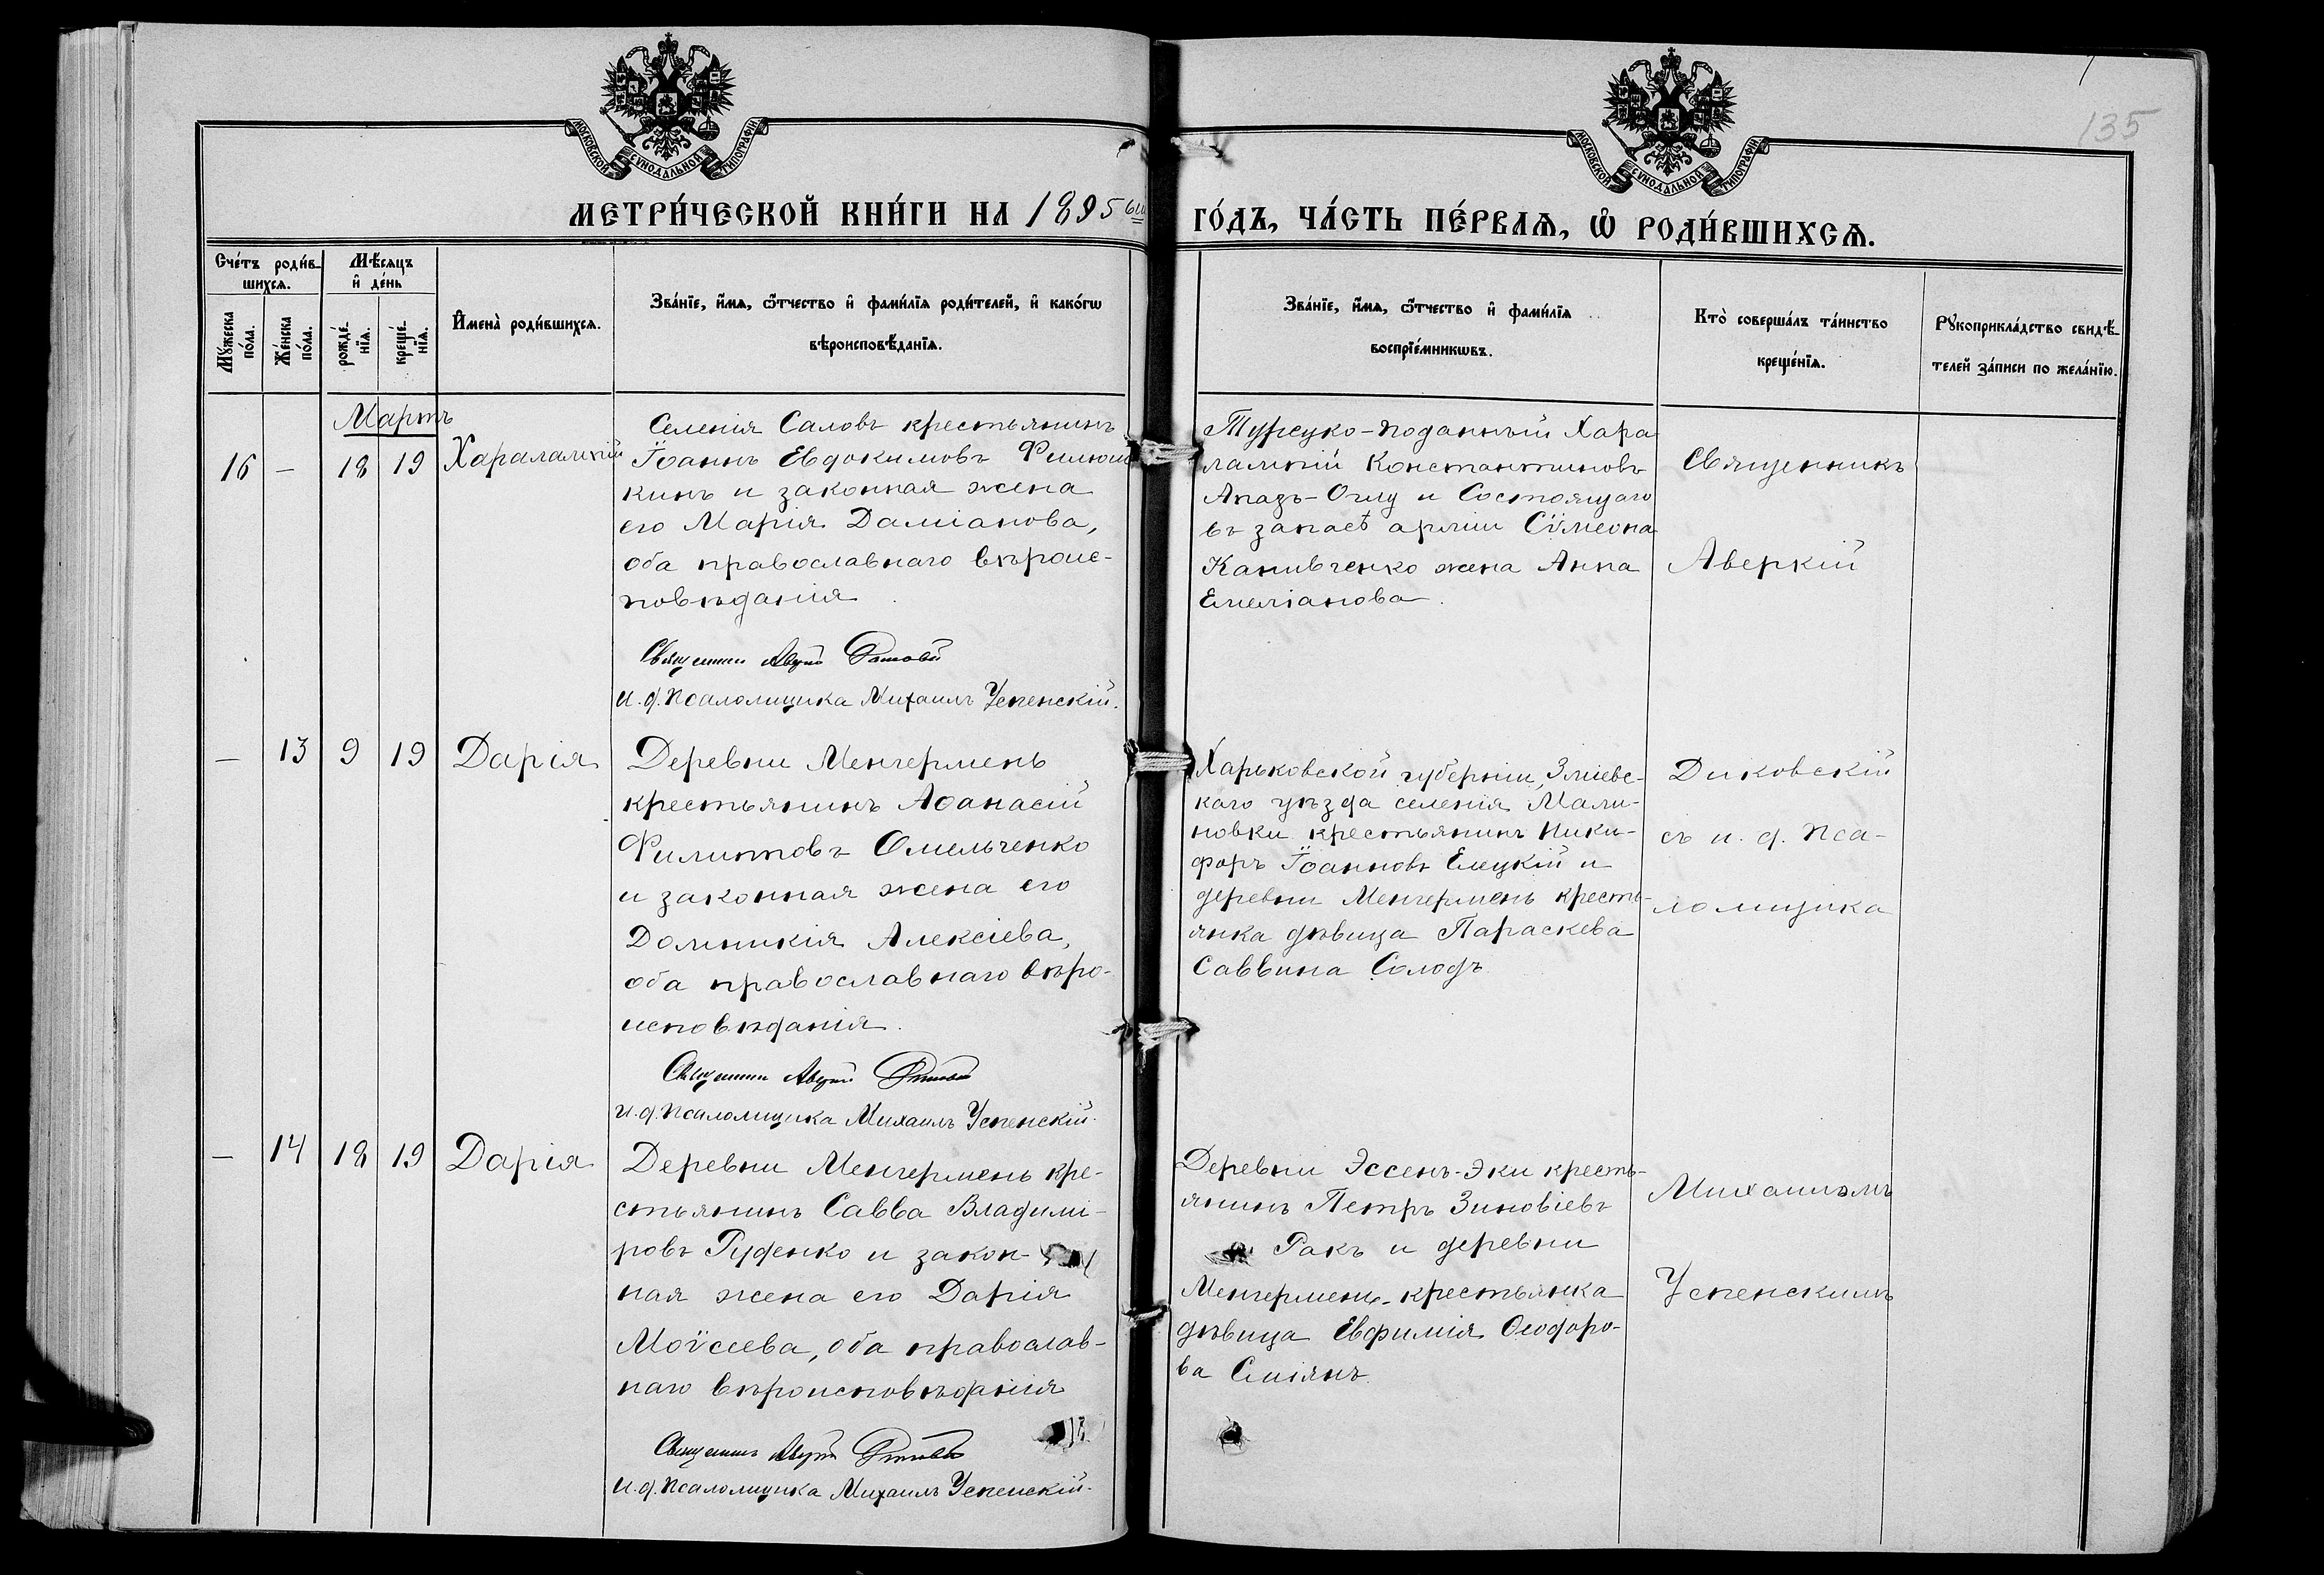 135
МОСКОВСКОЙ СѴНОДАЛЬНОЙ ТИПОГРАФІИ
МОСКОВСКОЙ СѴНОДАЛЬНОЙ ТИПОГРАФІИ
МЕТРИ́ЧЕСКОЙ КНИ́ГИ НА 1895
ГО́ДЪ, ЧА́СТЬ ПЕ́РВАѦ, Ѡ҆ РОДИ́ВШИХСѦ.
Сче́тъ роди́в-
шихсѧ.
Мꙋ́жеска
по́ла.
Же́нска
по́ла.
Мѣ́сѧцъ
и҆ де́нь
рожде́-
нїѧ.
креще́-
нїѧ.
И҆мена̀ роди́вшихсѧ.
Зва́нїе, и҆́мѧ, ѻ҆́тчество и҆ фами́лїѧ роди́телей, и҆ како́гѡ
вѣроисповѣ́данїѧ.
Зва́нїе, и҆́мѧ, ѻ҆́тчество и҆ фами́лїѧ
воспрїе́мникѡвъ.
Кто̀ соверша́лъ та́инство
креще́нїѧ.
Рꙋкоприкла́дство свидѣ́-
телей за́писи по жела́нїю.
Мартъ
16 - 18 19 Харалампій
Селенія Саловъ крестьянинъ
Іоаннъ Евдокимовъ
кинъ и законная жена
его Марія Даміанова,
оба православнаго вѣроис-
повѣданія
Священникъ
и. д. Псаломщика Михаилъ Успенскій.
Турецко-поданный Хара
лампій Константиновъ
Апазъ-Оглу и Состоящаго
въ запасѣ арміи Сѵмеона
Канивченко жена Анна
Емеліанова.
Священникъ
Аверкій
- 13 9 19 Дарія
Деревни Менгермень
крестьянинъ Аѳанасій
Филиповъ Омельченко
и законная жена его
Домникія Алексіева,
оба православнаго вѣро-
исповѣданія.
Священникъ
и. д. Псаломщика Михаилъ Успенскій.
Харьковской губерніи, Зміевс-
каго уѣзда селенія Мали-
новки крестьянинъ Ники-
форъ Іоанновъ Елецкій и
деревни Менгермень кресть-
янка дѣвица Параскева
Саввина Солодъ
Диковскій
съ и. д. Пса-
ломщика
- 14 18 19 Дарія
Деревни Менгермень кре-
стьянинъ Савва Владимі-
ровъ Руденко и закон-
ная жена его Дарія
Моѵсеева, оба православ-
наго вѣроисповѣданія
Священникъ
и. д. Псаломщика Михаилъ Успенскій.
Деревни Эссень-Эки кресть-
янинъ Петръ Зиновіевъ
Ракъ и деревни
Менгермень крестьянка
дѣвица Евфимія Ѳеодоро-
ва
Михаиломъ
Успенскимъ